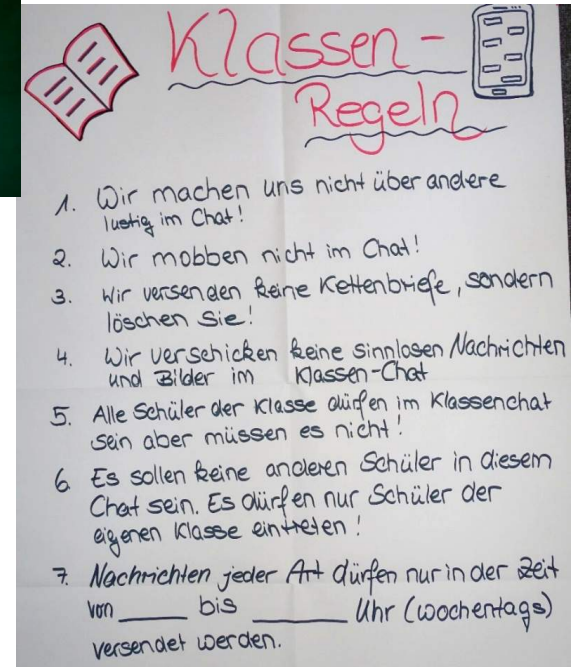 Klassen-
Regeln
1. Wir machen uns nicht über andere
lustig im Chat!
2. Wir mobben nicht im Chat!
3. Wir versenden keine Kettenbriefe, sondern
löschen Sie!
4. Wir verschicken keine sinnlosen Nachrichten
und Bilder im Klassen-Chat
5. Alle Schüler der Klasse dürfen im Klassenchat
sein aber müssen es nicht!
6 Es sollen keine anderen Schüler in diesem
Chat sein. Es dürfen nur Schüler der
eigenen Klasse eintreten!
7. Nachrichten jeder Art dürfen nur in der Zeit
von ______ bis ________ Uhr (wochentags)
versendet werden.